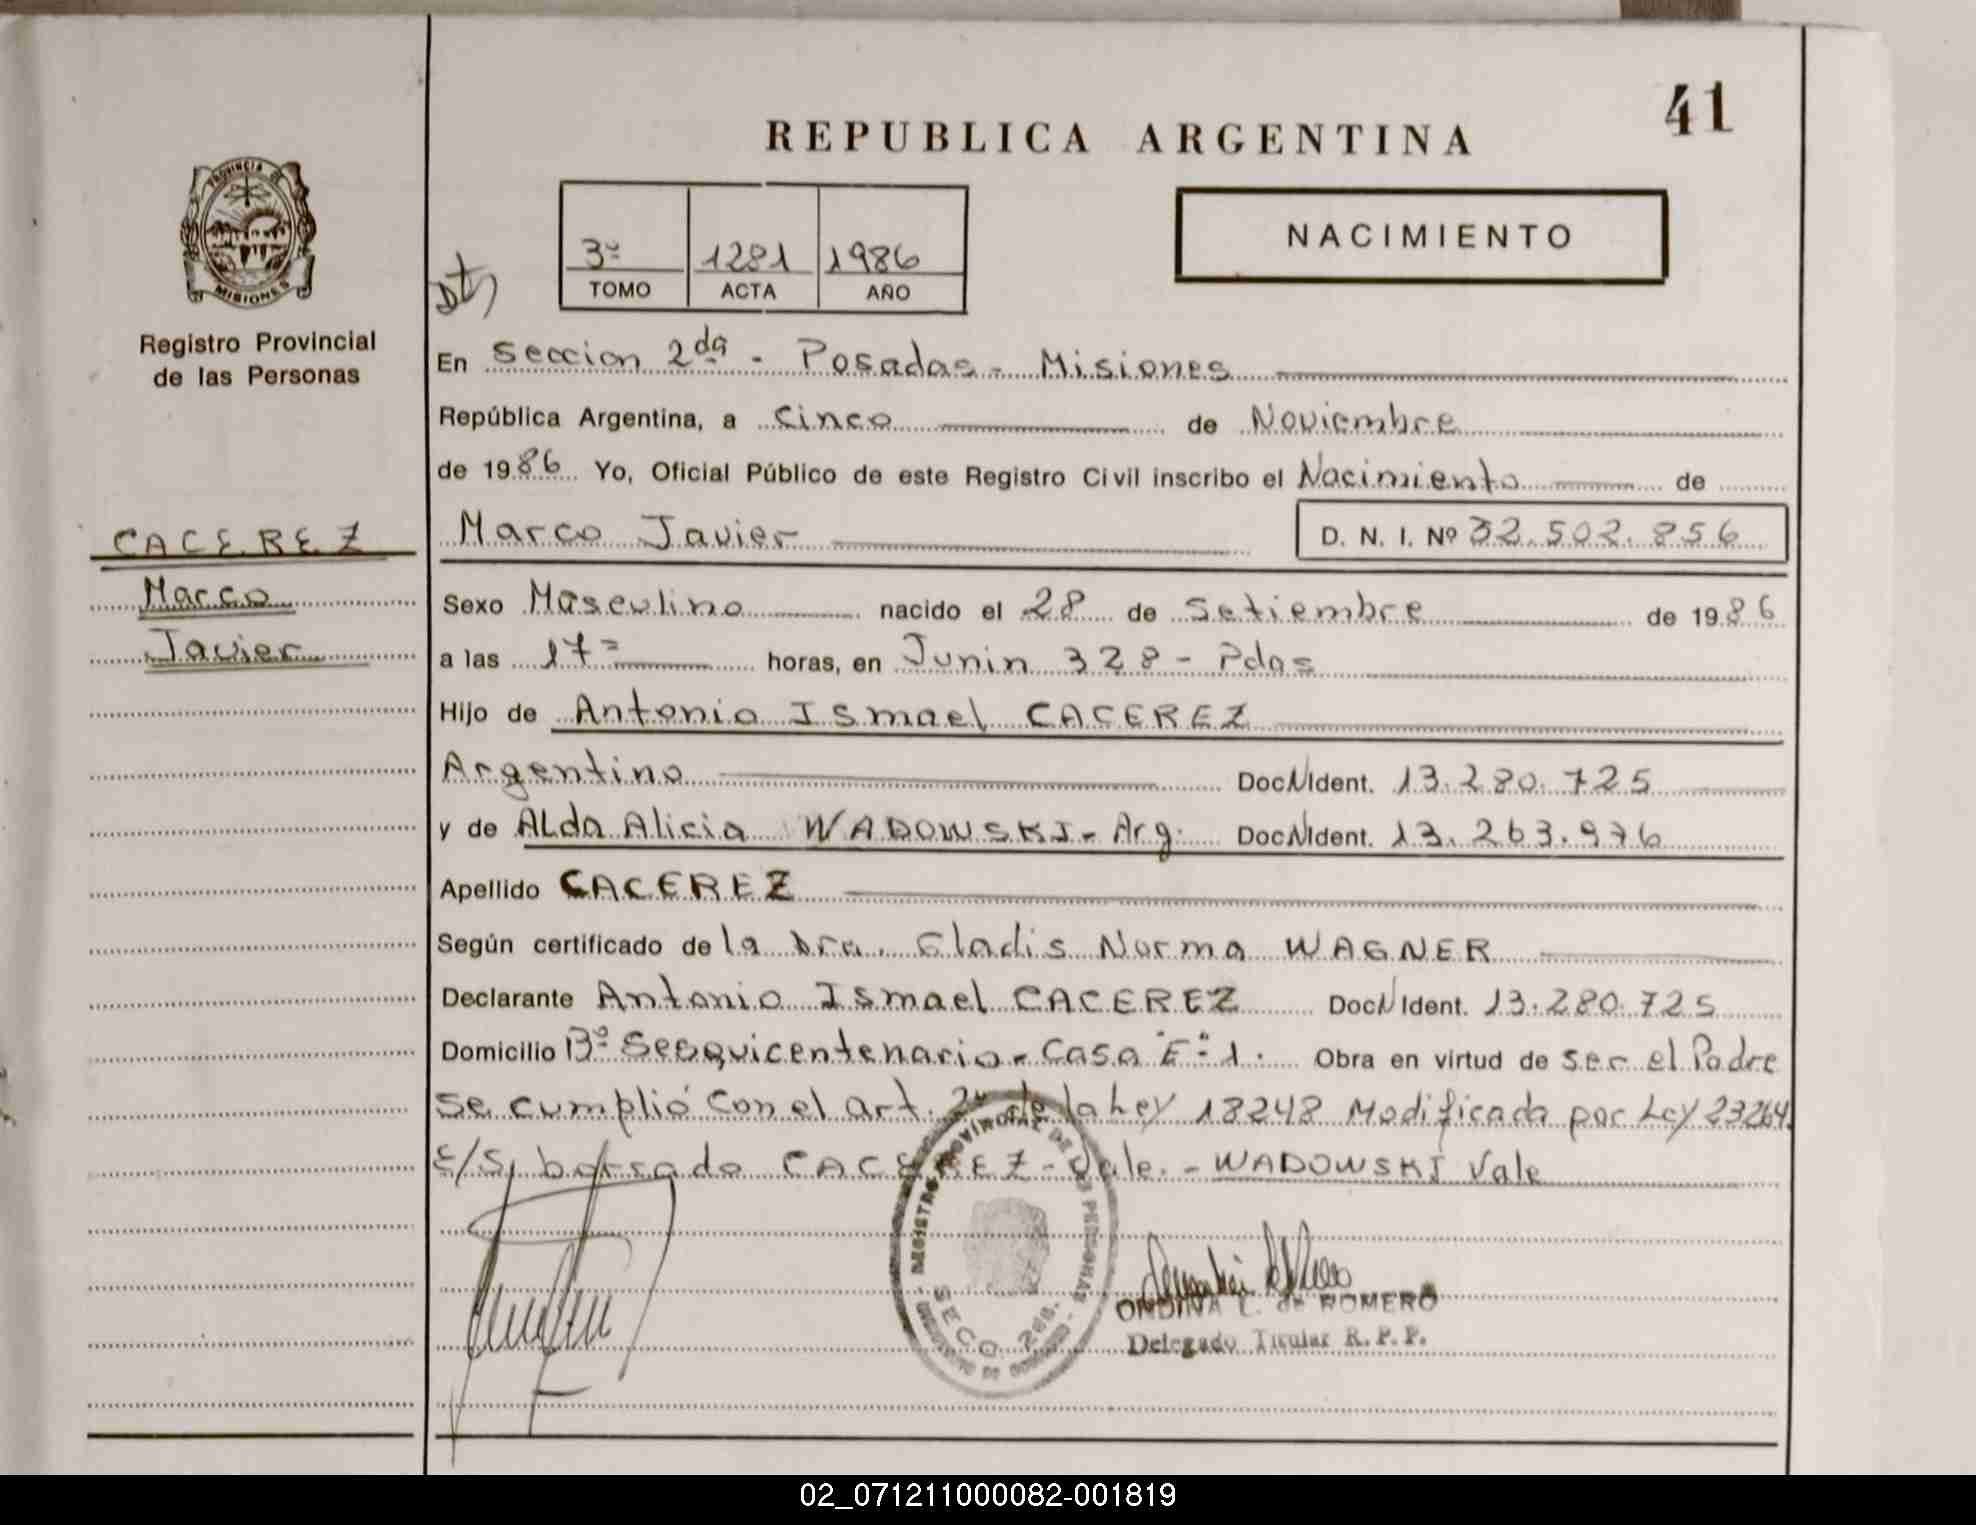 41
REPUBLICA ARGENTINA
PROVINCIA DE
MISIONES
Registro Provincial
de las Personas
3º 1281 1986
TOMO ACTA AÑO
NACIMIENTO
En Seccion 2da - Posadas - Misiones
República Argentina, a Cinco de Noviembre
de 1986 Yo, Oficial Público de este Registro Civil inscribo el Nacimiento de
CACEREZ
Marco Javier D. N. I. Nº 32.502.856
Marco
Sexo Masculino nacido el 28 de Setiembre de 1986
Javier
a las 17= horas, en Junin 328 - Pdas
Hijo de Antonio Ismael CACEREZ
Argentino Doc N Ident. 13.280.725
y de ALda Alicia WADOWSKI - Arg. Doc N Ident. 13.263.976
Apellido CACEREZ
Según certificado de la Dra. Gladis Norma WAGNER
Declarante Antonio Ismael CACEREZ Doc N Ident. 13.280.725
Domicilio Bº Sesquicentenario - Casa "E" - 1. Obra en virtud de ser el Padre
se cumplió con el art. 2º de la Ley 18248 Modificada por Ley 23264.
E/S, borrado CACEREZ - Vale. - WADOWSKI Vale
REGISTRO PROVINCIAL DE LAS PERSONAS
SECC. 2da.
ONDINA L. de ROMERO
Delegado Titular R. P. P.
02_071211000082-001819